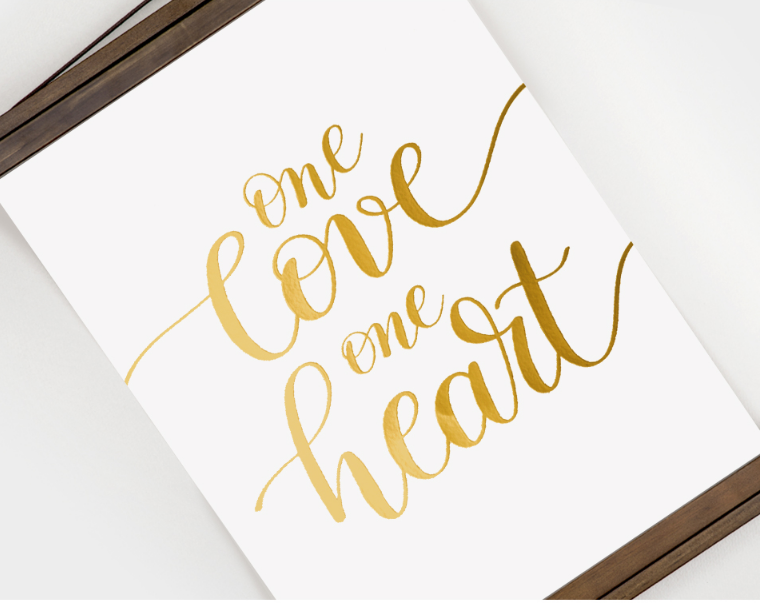 one
love
one
heart